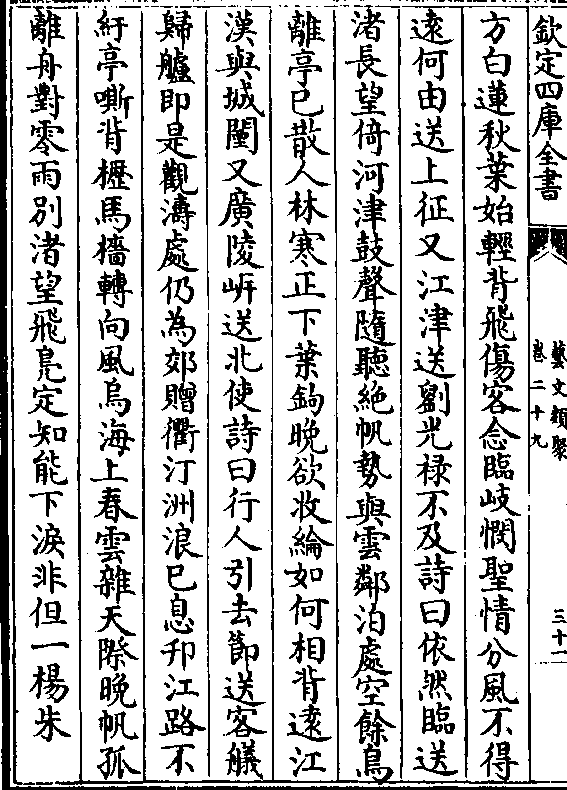 欽定四庫全書
藝文類聚
卷二十九
三十一
方白蓮秋葉始輕背飛傷客念臨岐憫聖情分風不得
逺何由送上征又江津送劉光禄不及詩曰依然臨送
渚長望倚河津鼓聲隨聽絶帆勢與雲鄰泊處空餘鳥
離亭已散人林寒正下葉鈎晚欲收綸如何相背逺江
漢與城闉又廣陵岍送北使詩曰行人引去節送客艤
歸艫即是觀濤處仍為郊贈衢汀洲浪已息邗江路不
紆亭嘶背櫪馬檣轉向風烏海上春雲雜天際晚帆孤
離舟對零雨别渚望飛鳬定知能下淚非但一楊朱